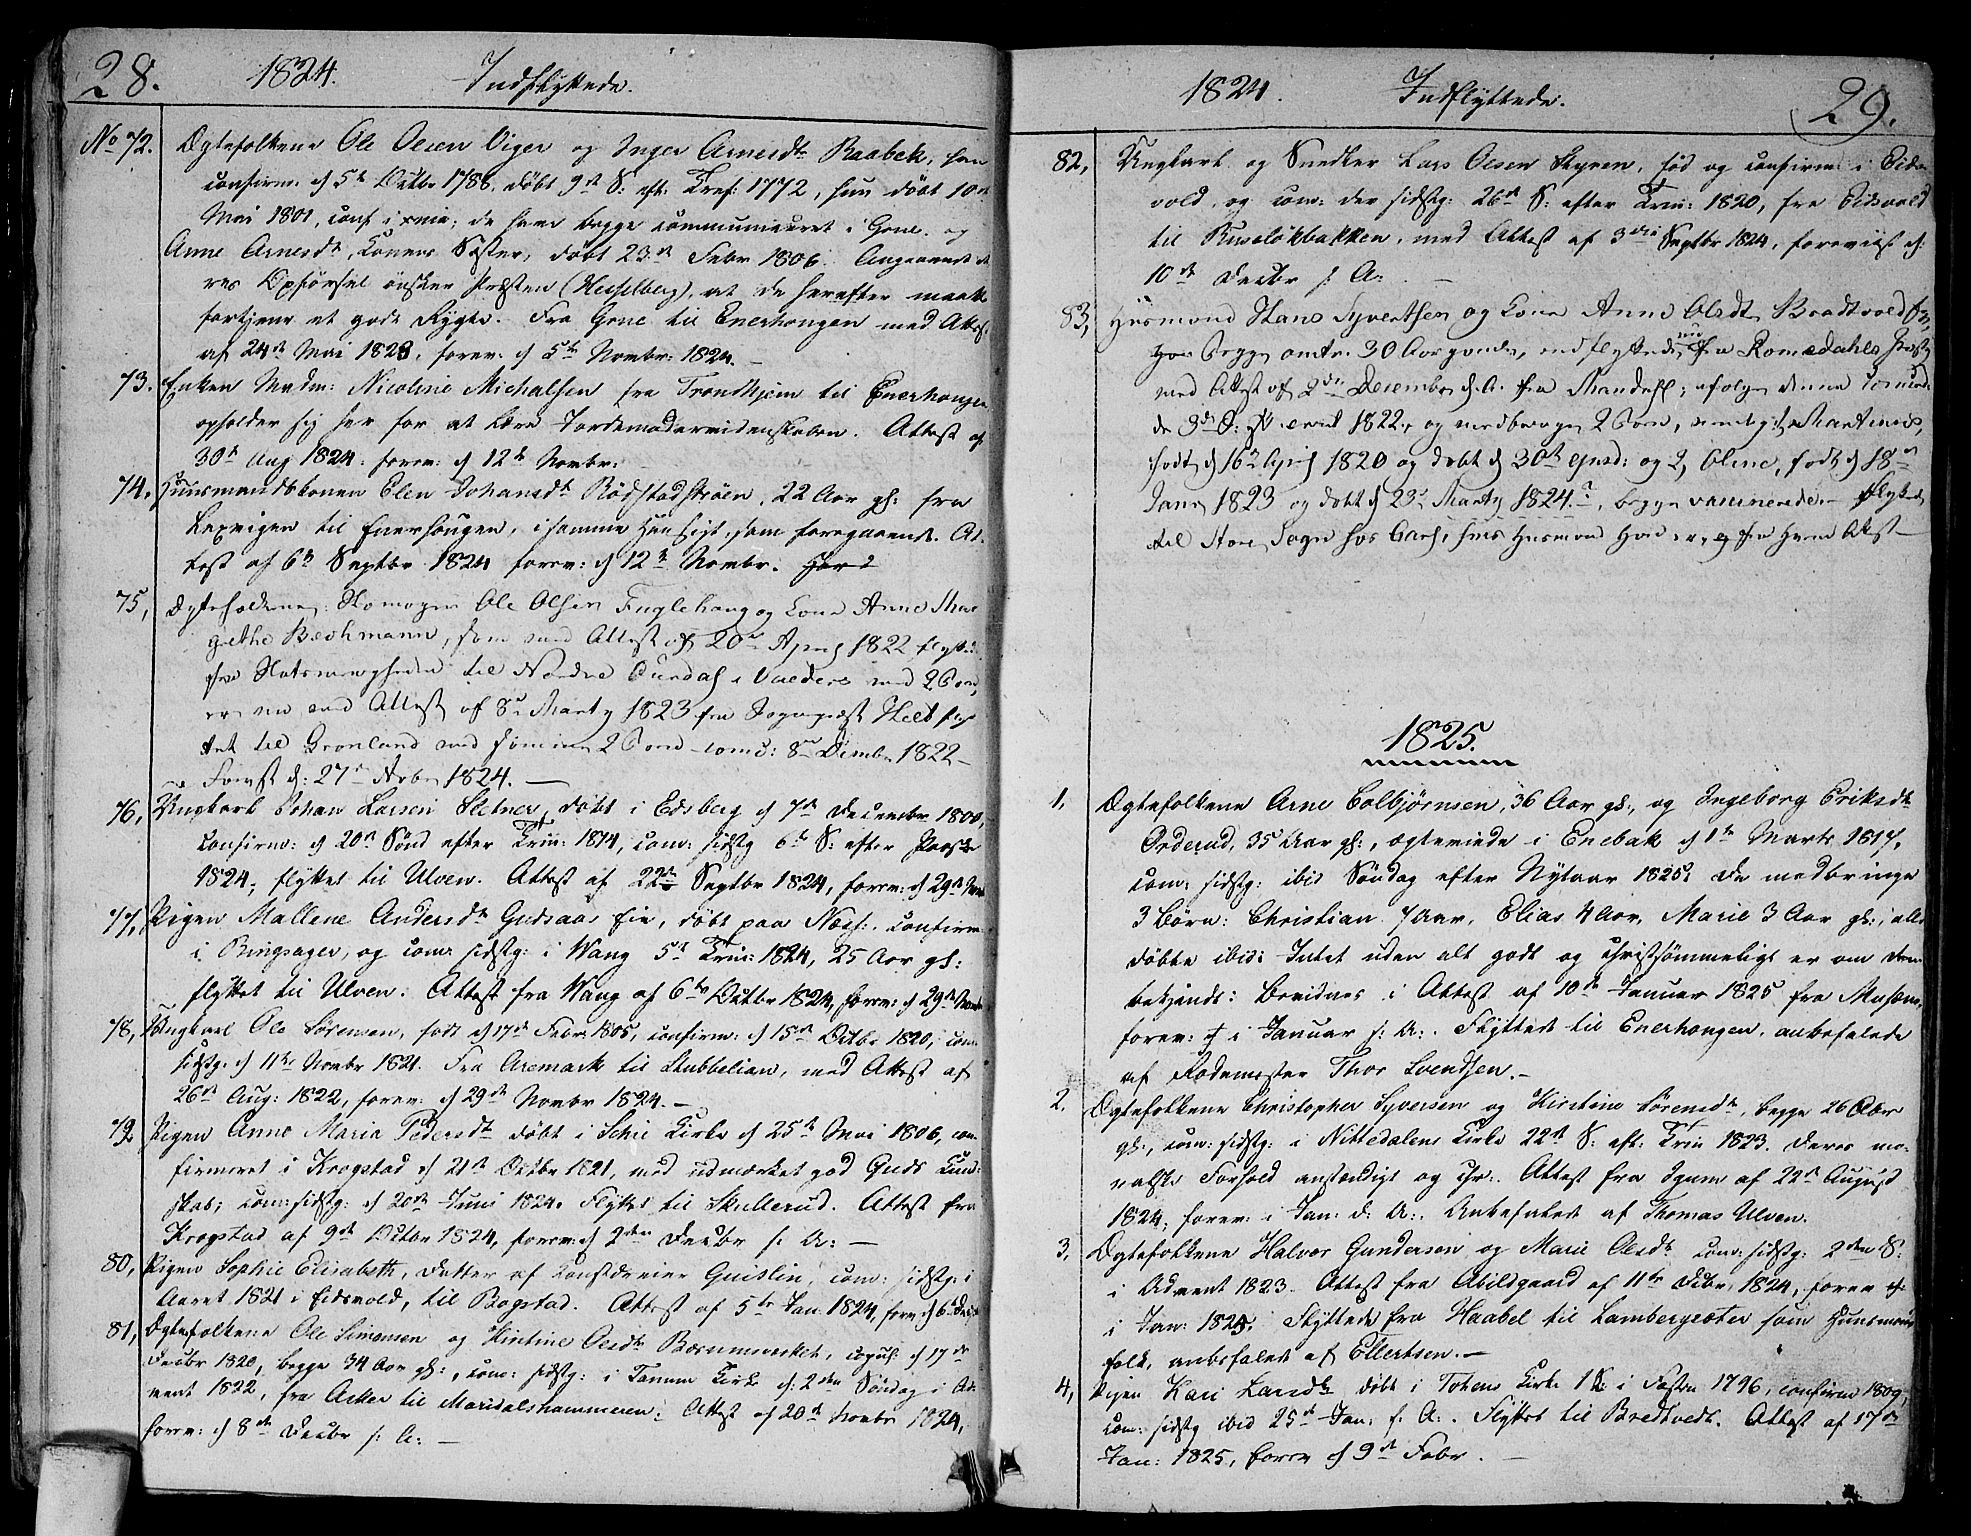 28. 1824. Indflyttede.
No 72. Ægtefolkene Ole Olsen Viger og Inger Arnesdr Raabek, han
confirm. d 5te Octbr 1788, døbt 9de S: eft: Tref: 1772, hun døbt 10de
Mai 1801, conf. i; de have begge communiceret i Grue. og
Anne Arnesdr, Konens Søster, døbt 23de Febr 1806. Angaaende de
res Opførsel ønsker Præsten (Hesselberg), at de herefter maatte
fortjene et godt Rygte. Fra Grue til Enerhougen med Attest
af 24de Mai 1823, forev. d 5te Novbr: 1824. —
73. Enken Madm: Nicoline Michalsen fra Trondhjem til Enerhougen
opholder sig her for at lære Jordemodervidenskaben. Attest af
30te Aug 1824. forev: d 12te Novbr:
74. Huusmandskonen Elen Johansdr Rødstadstrøen, 22 Aar gl: fra
Lexvigen til Enerhougen, i samme Hensigt, som foregaaende. At-
test af 6te Septbr 1824 forev: d 12te Novbr.
75, Ægtefolkene: Skomager Ole Olsen Fuglehaug og Kone Anne Mar
grethe Bechmann, som med Attest af 20de April 1822 flyttede
fra Slotsmenigheden til Nordre Ourdal i Valders med 2 Børn,
er nu med Attest af 8de Marty 1823 fra Sogneprest Helt flyt
tet til Grønland med samme 2 Børn — com: 8de Dcember 1822 —
Forevist d: 27de Novbr 1824. —
76, Ungkarl Johan Larsen Sletner, døbt i Edsberg d 7de Decembr 1800,
confirm: d 20de Sønd efter Trin: 1814, com: sidstg 6te S: efter Paaske
1824; flyttet til Ulven. Attest af 22de Septbr 1824, forev: d 29de Novbr
77, Pigen Mallene Andersdr Gudsaas Eie, døbt paa Næss:, confirm
i Ringsager, og com: sidstg: i Wang 5te Trin: 1824, 25 Aar gl:
flyttet til Ulven. Attest fra Wang af 6te Octbr 1824, forev: d 29de Novbr
78, Ungkarl Ole Sørensen, født d 17de Febr 1805, confirm: d 15de Octbr 1820, com:
sidstg: d 11te Novbr 1821. Fra Aremark til Stubbelian, med Attest af
26de Aug: 1822, forev: d 29de Novbr 1824. —
79, Pigen Anne Maria Pedersdr døbt i Schie Kirke d 25de Mai 1806, con-
firmeret i Krogstad d 21de Octbr 1821, med udmærket god Guds Kund-
skab; com: sidstg: d 20de Juni 1824. Flyttet til Skullerud. Attest fra
Krogstad af 9de Octbr 1824, forev: d 2den Decbr s: A: —
80, Pigen Sophie Elisabeth, Datter af Guislin, com: sidstg: i
Aaret 1821 i Eidsvold, til Bogstad. Attest af 5te Jan 1824, forev d 6te Decbr
81, Ægtefolkene Ole Simensen og Kirstine Olsdr Bærumsverket, copul: d 17de
Decbr 1820, begge 34 Aar gl:, com: sidstg: i Tanum Kirke d: 2den Søndag i Ad-
vent 1822, fra Asker til Maridalshammeren: Attest af 20de Novbr 1824,
forev: d 8de Decbr s: A: —
1824. Indflyttede. 29.
82, Ungkarl og Snedker Lars Olsen Styren, fød og confirm i Eids-
vold, og com: der sidstg: 26de S: efter Trin: 1820, fra Eidsvold
til Ruseløkbakken, med Attest af 3die Septbr 1824, foreviist d:
10de Decbr s A: —
83, Huusmand Hans Syvertsen og Kone Anne Olsdr Bradtvold Eie,
begge omtr. 30 Aar gamle, indflyttede fra Romsdahls Provstie
med Attest af 2den December d. A. fra Mandahl; ifølge denne commu
de 9de S: 1822, og medbringe 2 Børn, nemlig: 1, Martinus,
født d 16de April 1820 og døbt d 30te ejusd: og 2, Oline, født d 18de
Janr 1823 og døbt d 23de Marty 1824, begge vaccinerede. — flyttede
til Sogn hos
1825.
1, Ægtefolkene Arne Colbjørnsen, 36 Aar gl:, og Ingeborg Eriksdr
Orderud, 35 Aar gl:, ægteviede i Enebak d 1te Marts 1817,
com: sidstg: ibid Søndag efter Nytaar 1825. De medbringe
3 Børn: Christian 7 Aar, Elias 4 Aar, Marie 3 Aar gl:, alle
døbte ibid: Intet uden alt godt og christsømmeligt er om dem
bekjendt: Bevidnes i Attest af 10de Januar 1825 fra
forev: i Januar s: A:. Flyttede til Enerhougen, anbefalede
af Rodemester Thor Svendsen. —
2. Ægtefolkene Christopher Syversen og Kirstine Sørensdr, begge 26 Aar
gl:, com: sidstg: i Nittedalens Kirke 22de S: eft: Trin 1823. Deres mo-
ralske Forhold anstændigt og chr:. Attest fra af 22de August
1824, forev: i Jan: d: A:. Anbefalede af Thomas Ulven.
3, Ægtefolkene Halvor Gundersen og Marie Olsdr com: sidstg: 2den S:
i Advent 1823. Attest fra Abildgaard af 11te Decbr 1824, forev d
i Jan: 1825. Flyttede fra Haabel til Lambergseter som Huusmands
folk, anbefalede af Ellertsen. —
4, Pigen Kari Larsdr døbt i Totens Kirke 1 S: i Fasten 1796, confirm 1809,
com: sidstg ibid 25de Jan: s. A:. Flyttet til Bredtvedt. Attest af 17de
Jan: 1825, forev d 9de Febr. —